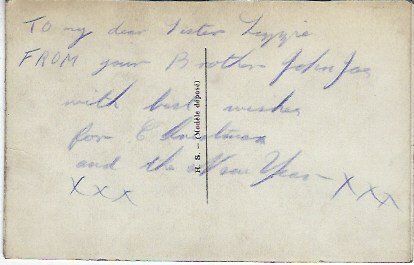 To my dear Sister Lizzie
FROM your Brother John Jas
with best wishes
for Christmas
and the New Year
X X X X X X
H. S. - (Modèle déposé)